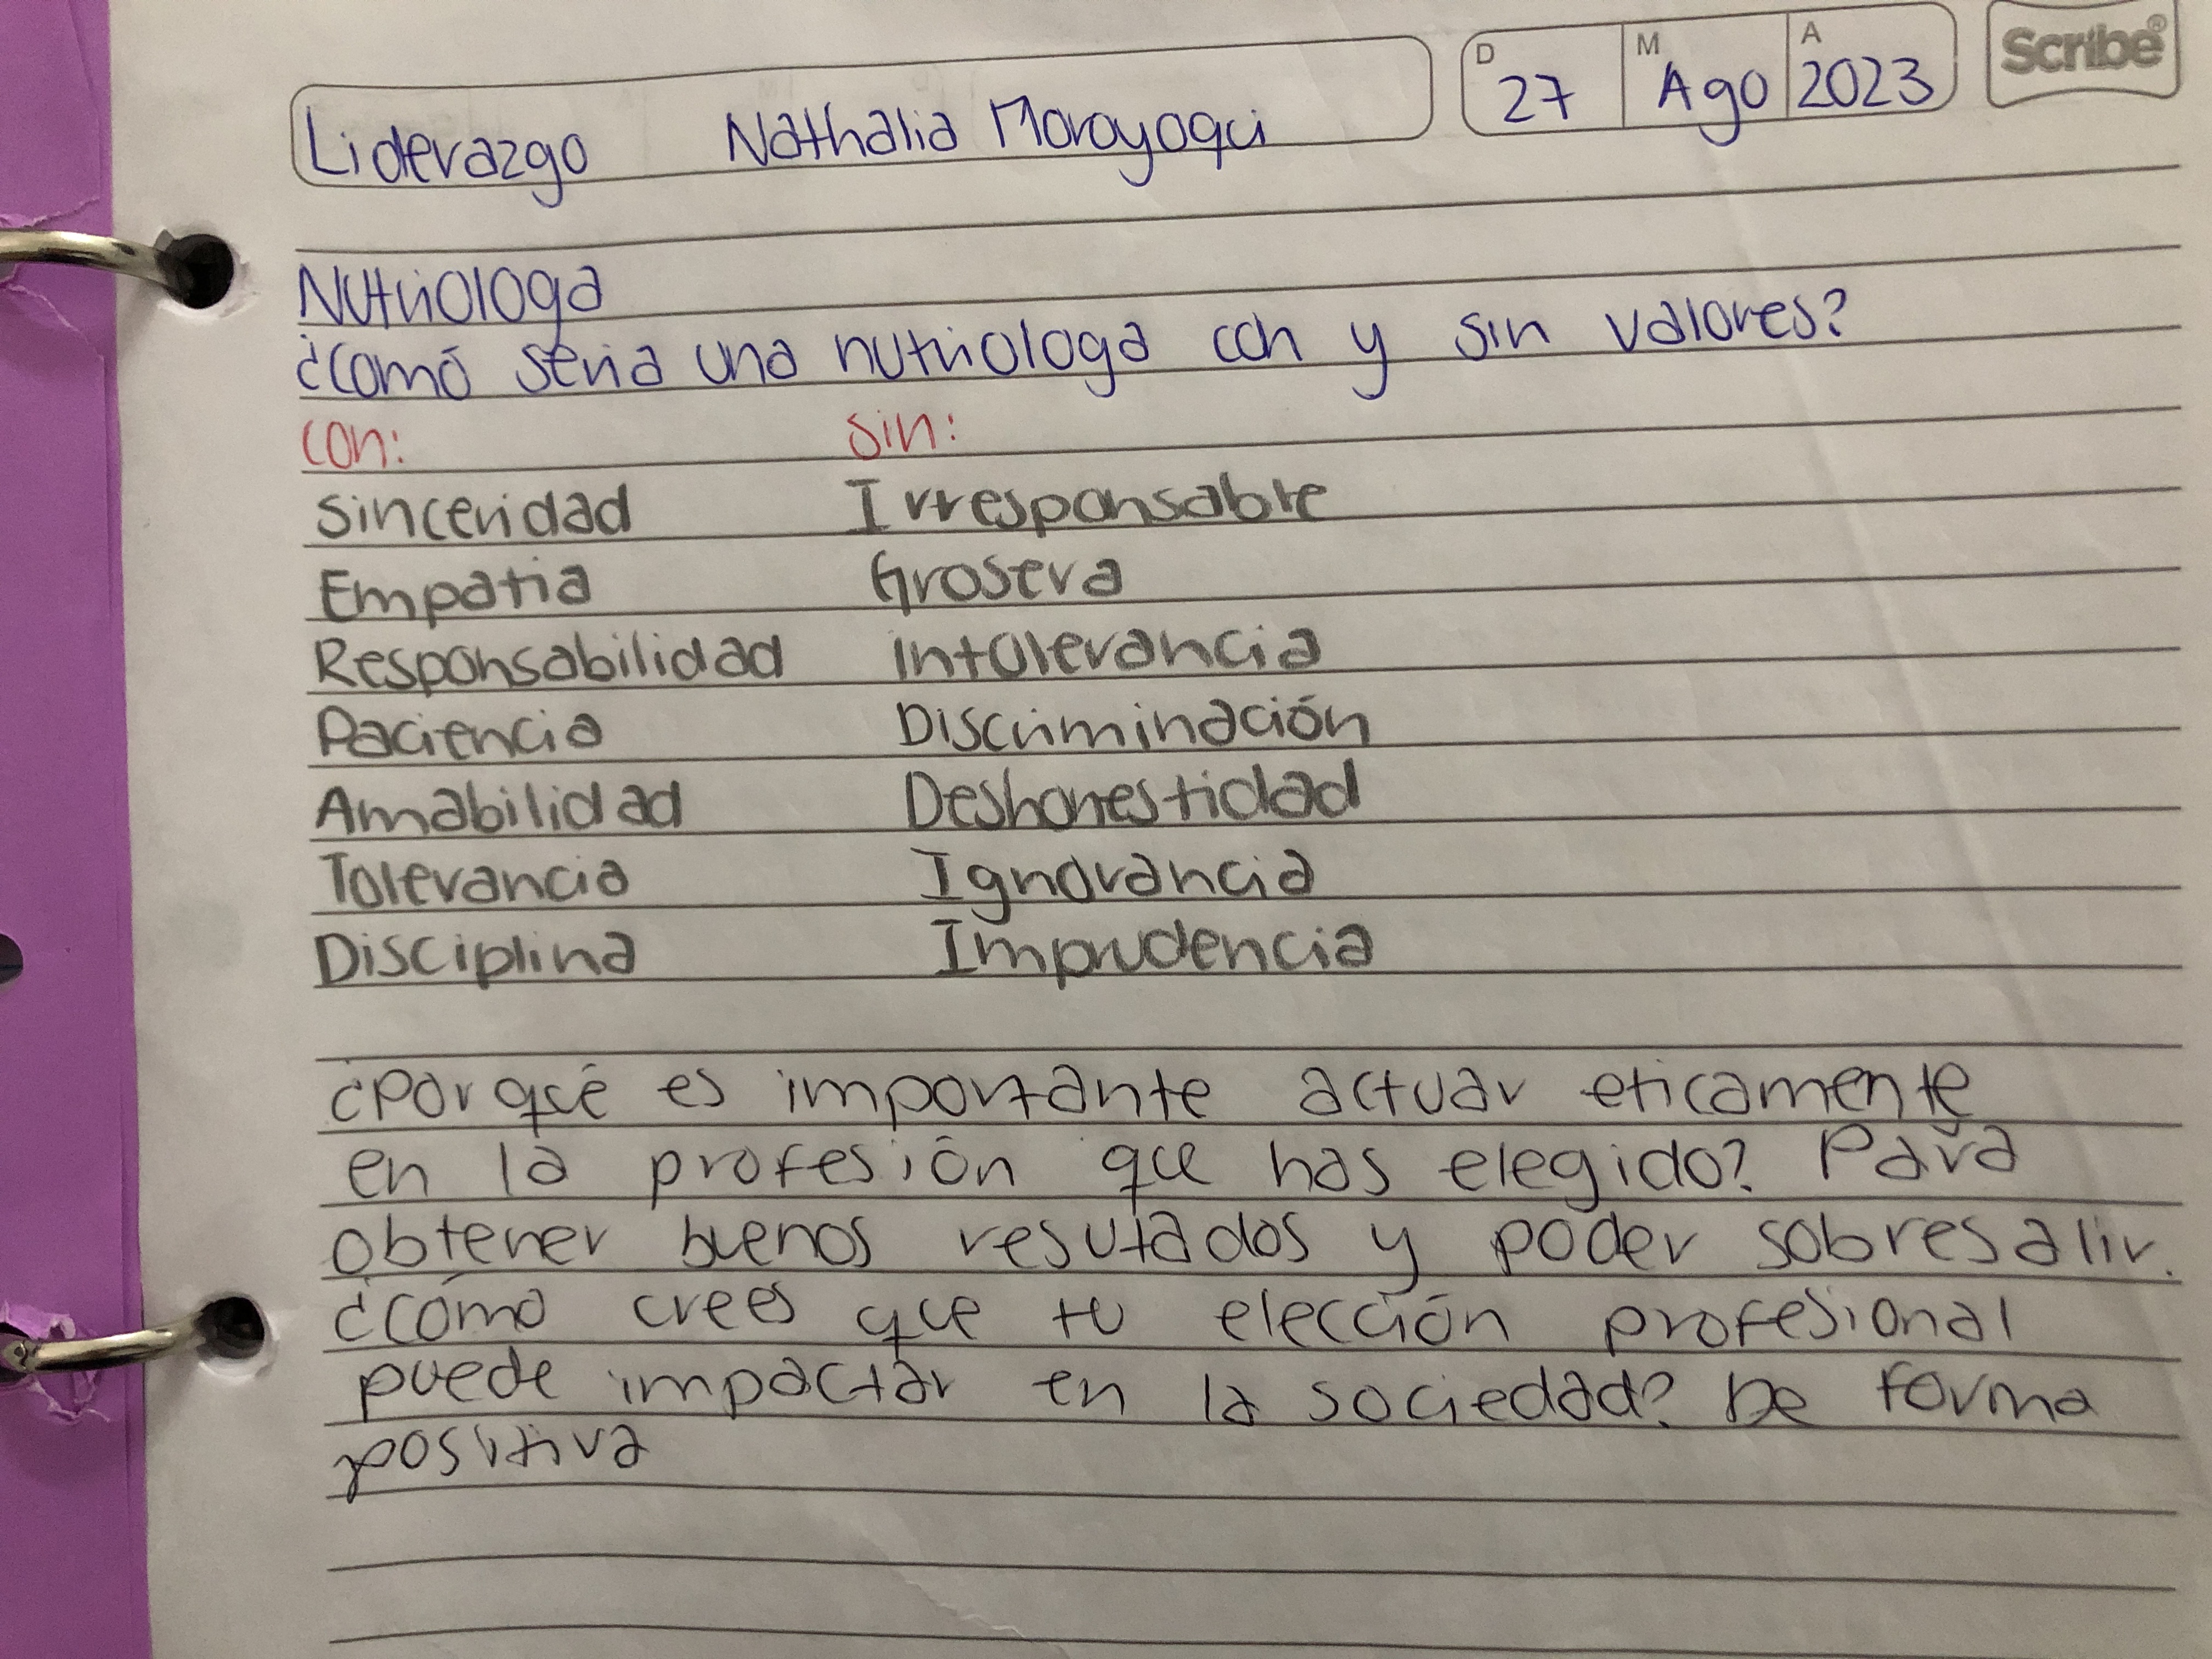 Liderazgo Nathalia Moroyoqui D 27 M Ago A 2023 Scribe®
Nutriologa
¿Comó seria una nutriologa con y sin valores?
con: sin:
Sinceridad Irresponsable
Empatia Grosera
Responsabilidad Intolerancia
Paciencia Discriminación
Amabilidad Deshonestidad
Tolerancia Ignorancia
Disciplina Imprudencia
¿Por qué es importante actuar eticamente
en la profesión que has elegido? Para
obtener buenos resutados y poder sobresalir.
¿Cómo crees que tu elección profesional
puede impactar en la sociedad? De forma
positiva